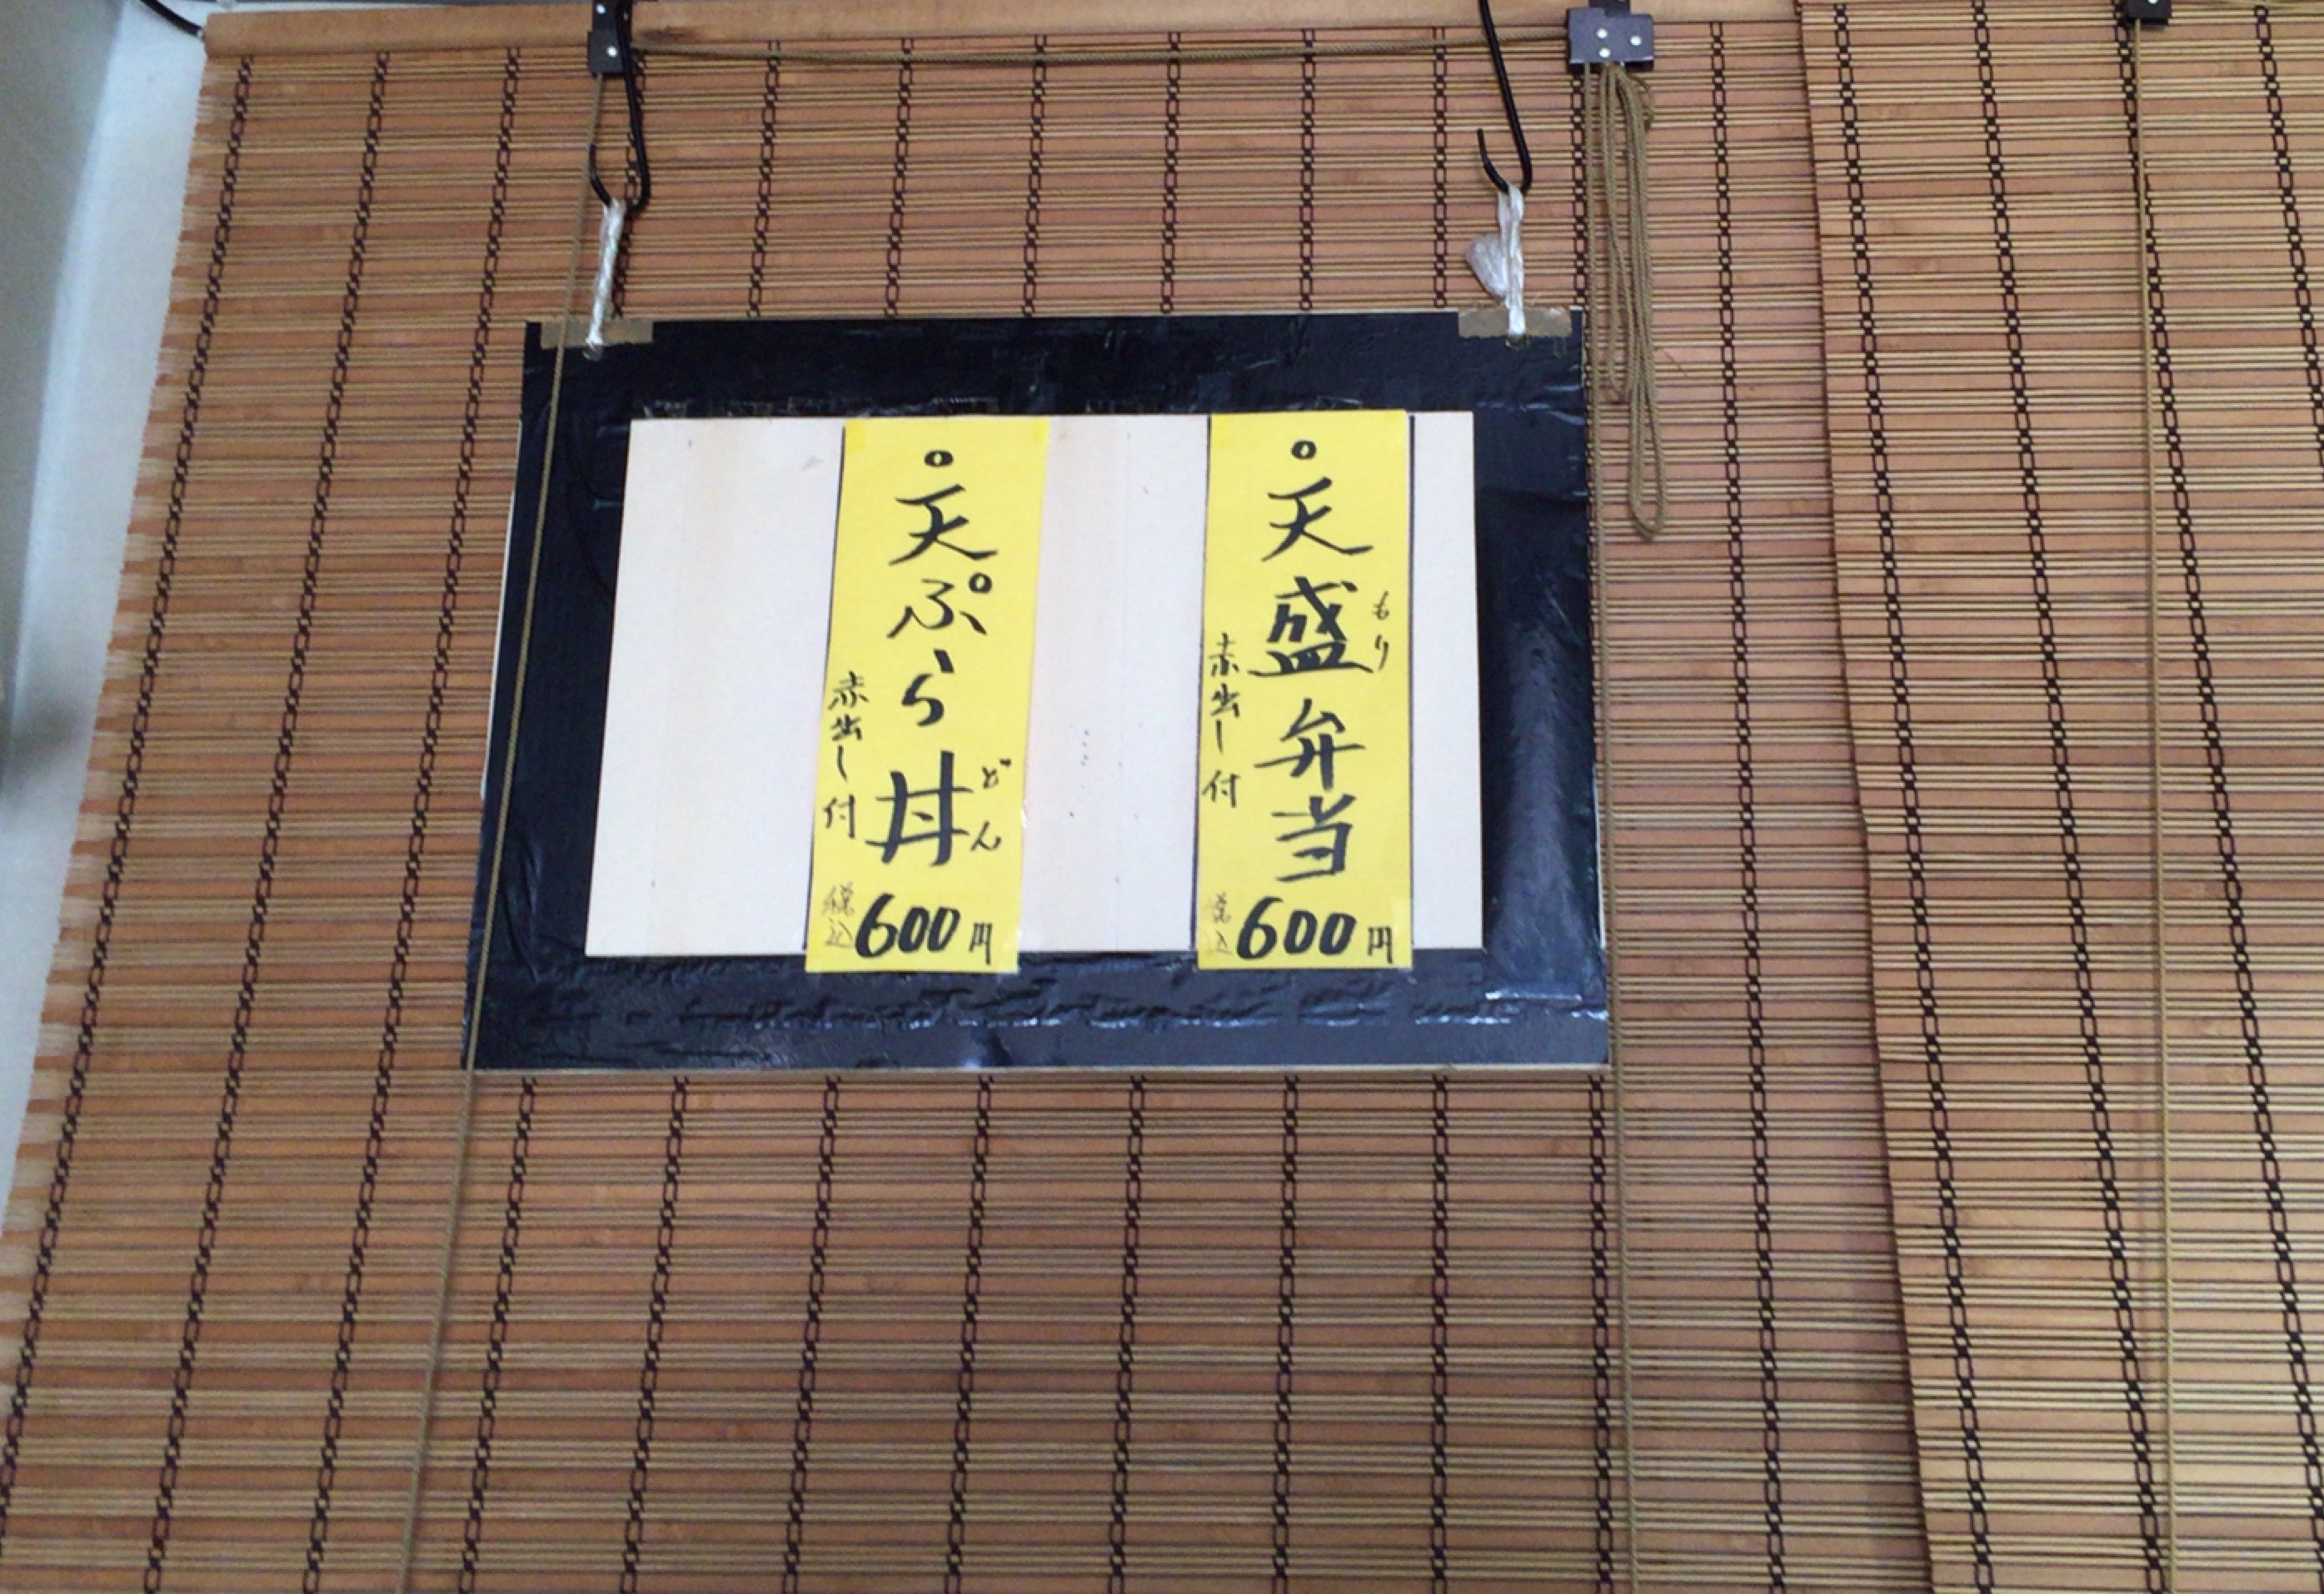 天盛弁当
もり
赤出し付
税込600円
天ぷら丼
どん
赤出し付
税込600円